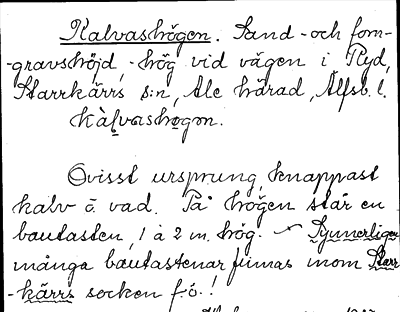 Kalvashögen. Sand- och forn-
-gravshöjd, -hög vid vägen i Ryd,
Starrkärrs s:n, Ale härad, Älfsb. l.
kàlvashøgən.
Ovisst ursprung, knappast
kalv o. vad. På högen står en
bautasten, 1 à 2 m. hög. - Synnerligen
många bautastenar finnas inom Starr-
-kärrs socken f.ö.!